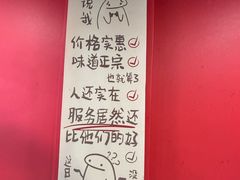 说我
价格实惠
味道正宗
也就算了
人还实在
服务居然还
比他们的好
这日
没